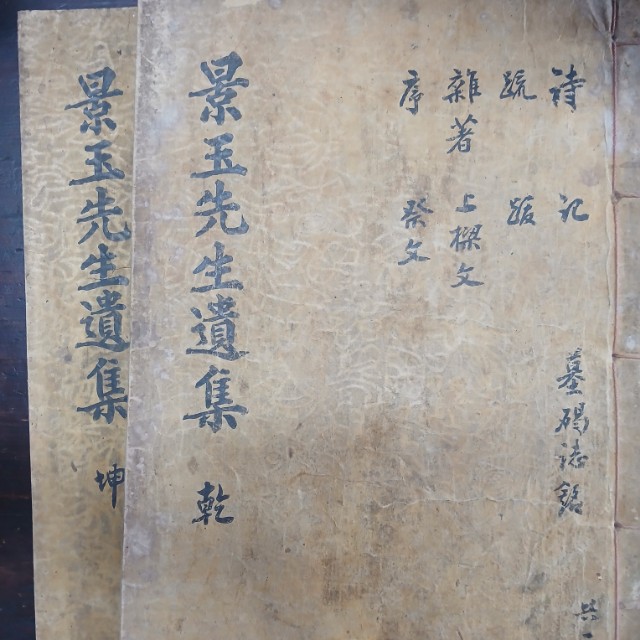 詩 記 墓碣誌銘
疏 跋
雜著 上樑文
序 祭文
景玉先生遺集 乾
景玉先生遺集 坤